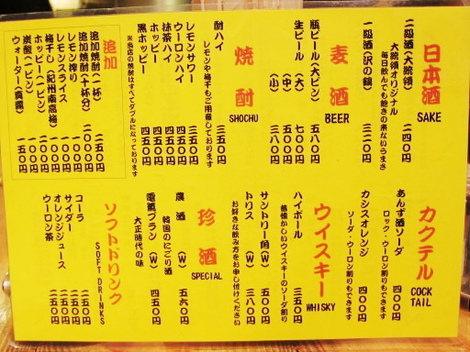 日本酒
SAKE
二級酒(大統領) 二四〇円
大統領オリジナル
毎日飲んでも飽きの来ないうまさ
一級酒(沢の鶴) 三二〇円
麦酒
BEER
瓶ビール(大ビン) 五八〇円
生ビール (大) 七〇〇円
(中) 五〇〇円
(小) 三八〇円
焼酎
SHOCHU
酎ハイ 三五〇円
レモンや梅干もご用意しております
レモンサワー 三五〇円
ウーロンハイ 四五〇円
抹茶ハイ 四五〇円
ホッピー 四五〇円
黒ホッピー 四五〇円
※当店の焼酎はすべてダブルになっております
追加
追加焼酎(一杯分) 二五〇円
追加焼酎(十杯分) 二〇〇〇円
レモン搾り 一〇〇円
レモンスライス 一〇〇円
梅干し(紀州南高梅) 一〇〇円
ホッピー(一ビン) 二〇〇円
炭酸(一ビン) 一五〇円
ウォーター
カクテル
COCK
TAIL
あんず酒ソーダ 四〇〇円
ロック・ウーロン割りもできます
カシスオレンジ 四〇〇円
ソーダ・ウーロン割りもできます
ウイスキー
WHISKY
ハイボール 三五〇円
昔懐かしいウイスキーのソーダ割り
サントリー角(W) 五〇〇円
トリス (W) 三八〇円
お好きな飲み方をお申し付けください
珍酒
SPECIAL
農酒 五六〇円
韓国のにごり酒
電気ブラン(W) 四五〇円
大正時代の味
ソフトドリンク
SOFT DRINKS
コーラ 二五〇円
サイダー 二五〇円
オレンジジュース 二五〇円
ウーロン茶 二五〇円